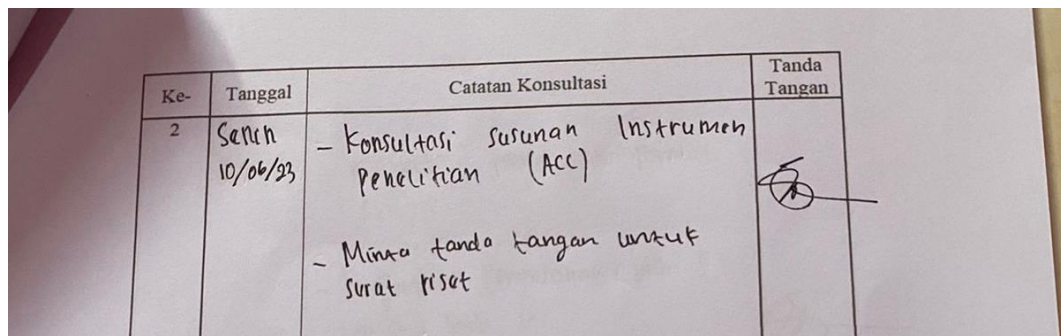 Ke- Tanggal Catatan Konsultasi Tanda Tangan
2 Senin - Konsultasi susunan Instrumen
10/06/23 penelitian (ACC)
- Minta tanda tangan untuk
surat riset